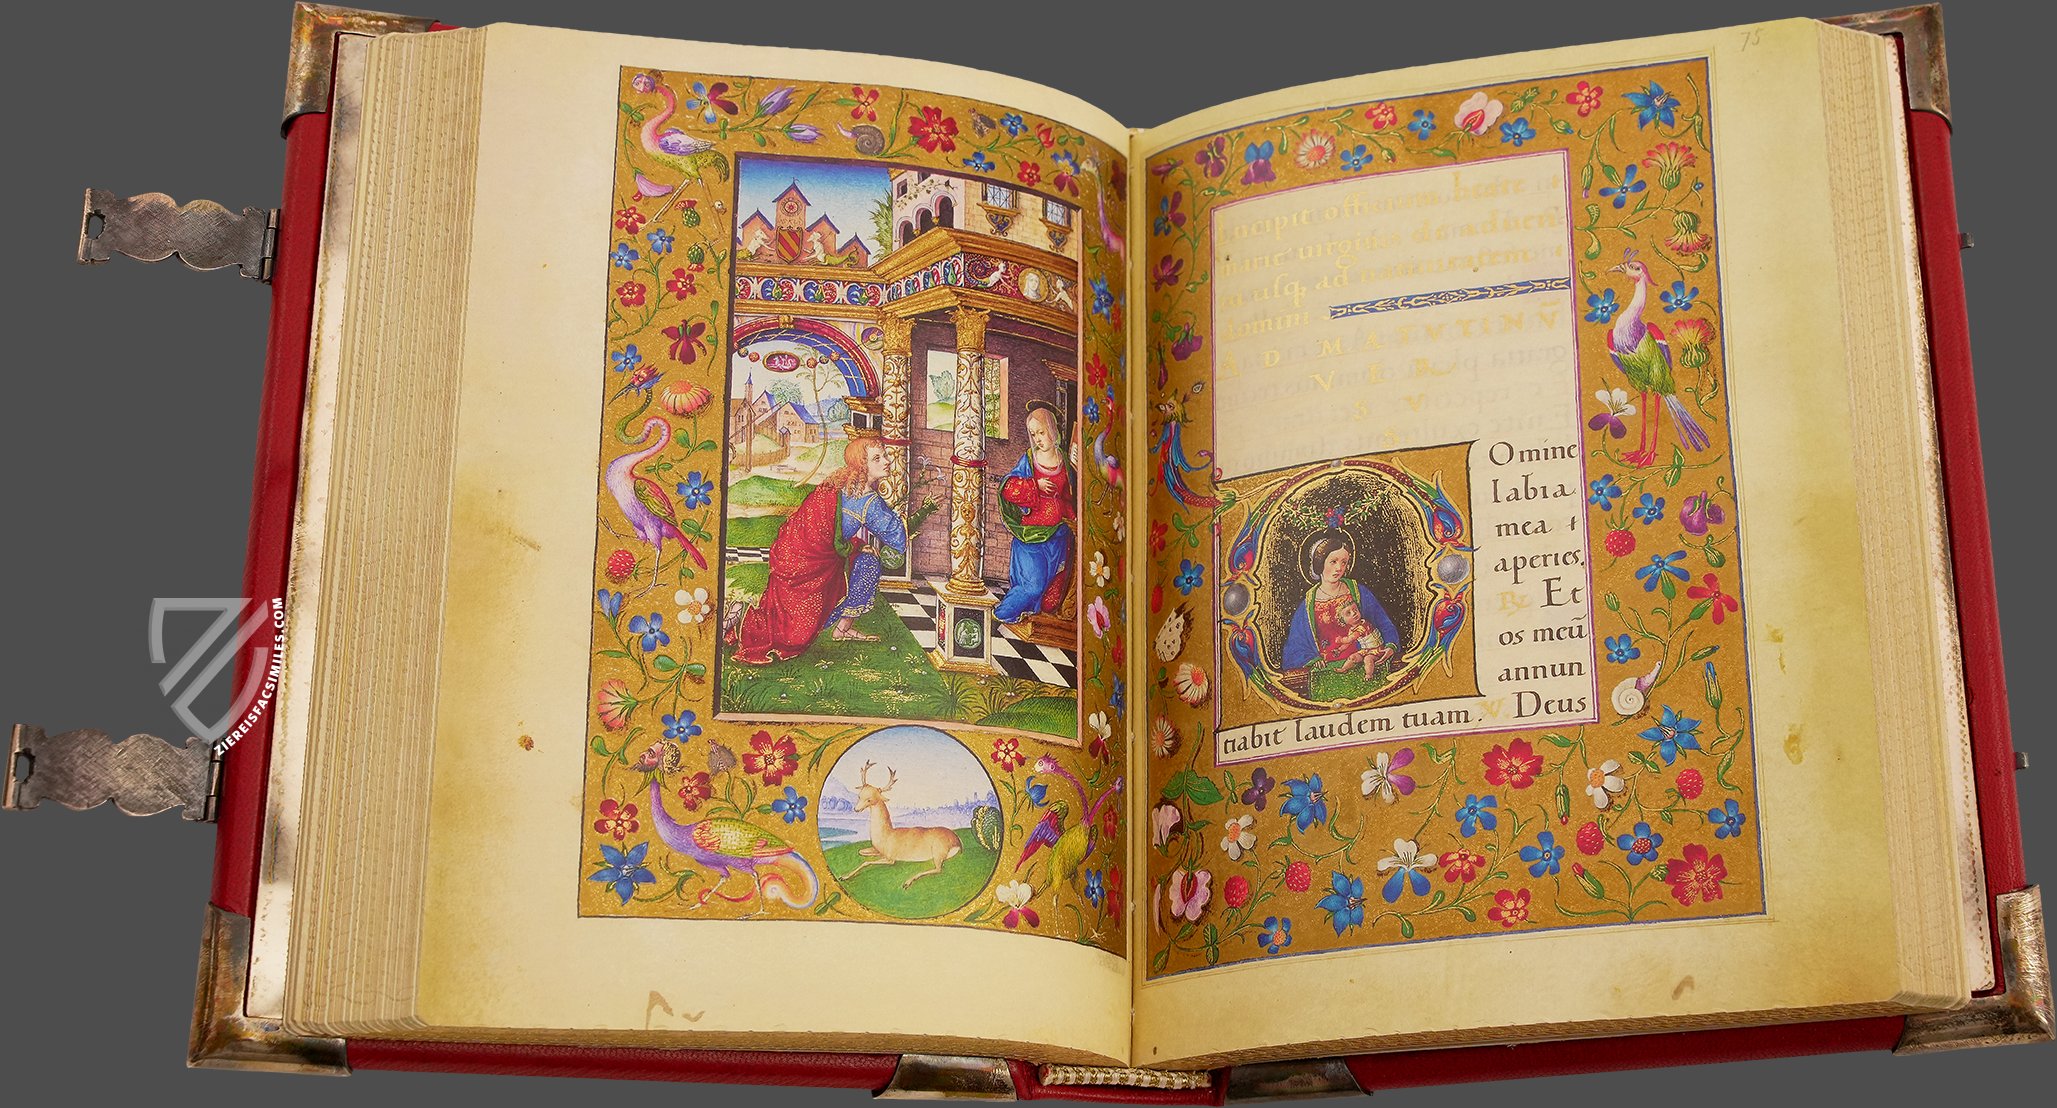 75
Incipit officium beate
marie virginis de adven
tu usq̨ ad nativitatem
domini
AD MATUTINŪ
VER
SV
S
Domine
labia
mea
aperies.
℟. Et
os meū
annun
tiabit laudem tuam. V. Deus
ZIEREISFACSIMILES.COM